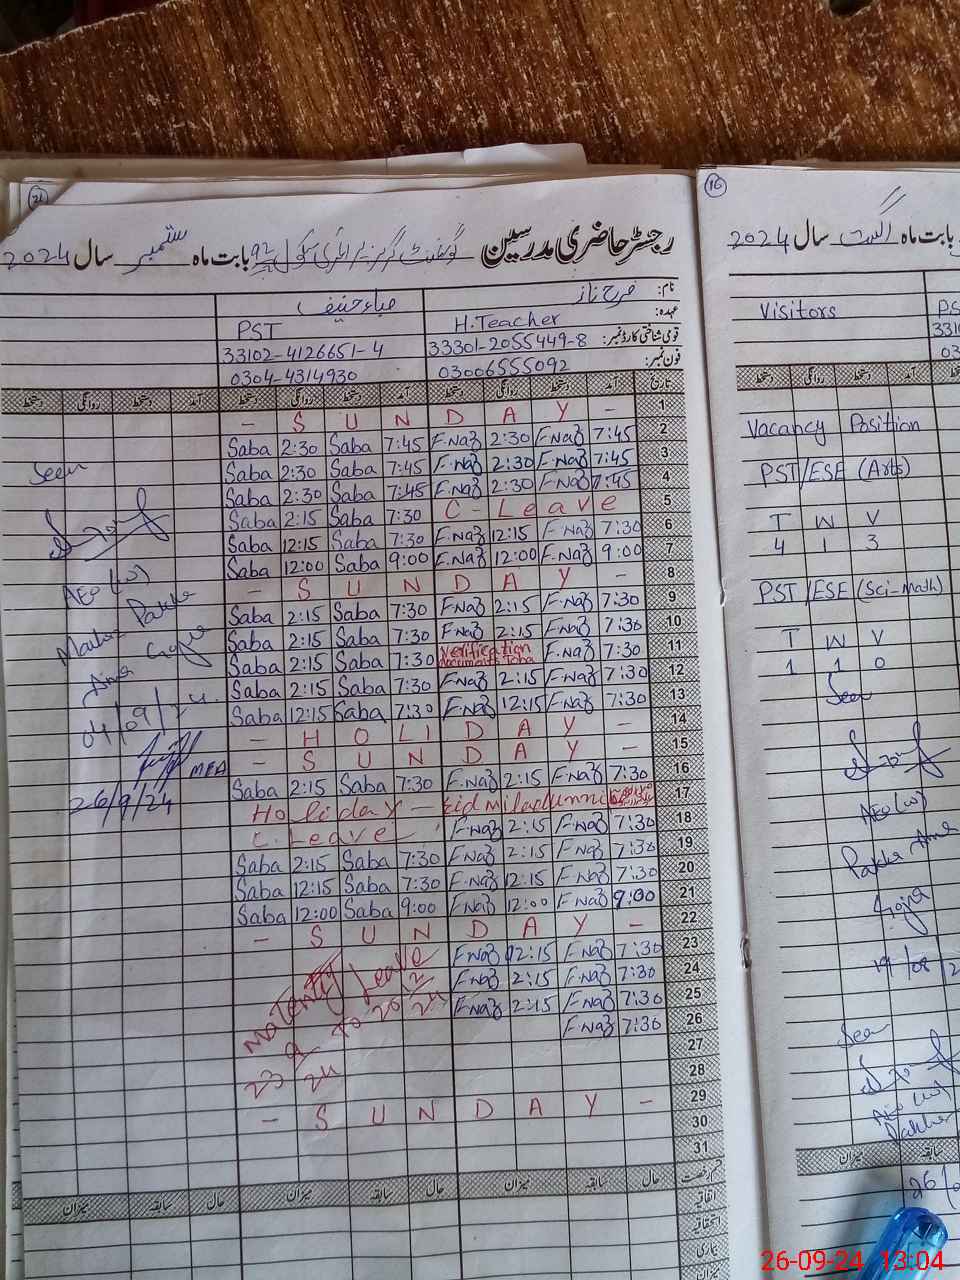 21
رجسٹر حاضری مدرسین گورنمنٹ گرلز پرائمری سکول 92 بابت ماہ ستمبر سال 2024
نام: فرح ناز صباء حنیف
عہدہ: H.Teacher PST
قومی شناختی کارڈ نمبر: 33301-2055449-8 33102-4126651-4
فون نمبر: 03006555092 0304-4314930
تاریخ آمد دستخط روانگی دستخط آمد دستخط روانگی دستخط آمد دستخط روانگی دستخط
- S U N D A Y - 1
Saba 2:30 Saba 7:45 F.Naz 2:30 F.Naz 7:45 2
Saba 2:30 Saba 7:45 F.Naz 2:30 F.Naz 7:45 3
Saba 2:30 Saba 7:45 F.Naz 2:30 F.Naz 7:45 4
Saba 2:15 Saba 7:30 C- Leave 5
Saba 12:15 Saba 7:30 F.Naz 12:15 F.Naz 7:30 6
Saba 12:00 Saba 9:00 F.Naz 12:00 F.Naz 9:00 7
- S U N D A Y - 8
Saba 2:15 Saba 7:30 F.Naz 2:15 F.Naz 7:30 9
Saba 2:15 Saba 7:30 F.Naz 2:15 F.Naz 7:30 10
Saba 2:15 Saba 7:30 Verification F.Naz 7:30 11
Saba 2:15 Saba 7:30 F.Naz 2:15 F.Naz 7:30 12
Saba 12:15 Saba 7:30 F.Naz 12:15 F.Naz 7:30 13
- H O L I D A Y - 14
- S U N D A Y - 15
Saba 2:15 Saba 7:30 F.Naz 2:15 F.Naz 7:30 16
Holiday - Eid Miladunnabi 17
C. Leave F.Naz 2:15 F.Naz 7:30 18
Saba 2:15 Saba 7:30 F.Naz 2:15 F.Naz 7:30 19
Saba 12:15 Saba 7:30 F.Naz 12:15 F.Naz 7:30 20
Saba 12:00 Saba 9:00 F.Naz 12:00 F.Naz 9:00 21
- S U N D A Y - 22
F.Naz 12:15 F.Naz 7:30 23
F.Naz 2:15 F.Naz 7:30 24
F.Naz 2:15 F.Naz 7:30 25
F.Naz 7:30 26
27
28
- S U N D A Y - 29
30
31
Maternity Leave
23 9 24 To 20 2
Seen
AEO (W)
Pakka
04/09/24
MEA
26/9/24
قسم رخصت حال سابقہ میزان حال سابقہ میزان حال سابقہ میزان
اتفاقیہ
استحقاقیہ
میزان
16
بابت ماہ اگست سال 2024
Visitors
دستخط روانگی دستخط آمد
Vacancy Position
PST/ESE (Arts)
T W V
4 1 3
PST/ESE (Sci-Math)
T W V
1 1 0
Seen
AEO (W)
Pakka Anna
Gojra
19/08/2
Seen
AEO (W)
Pakka
میزان سابقہ
26
26-09-24 13:04